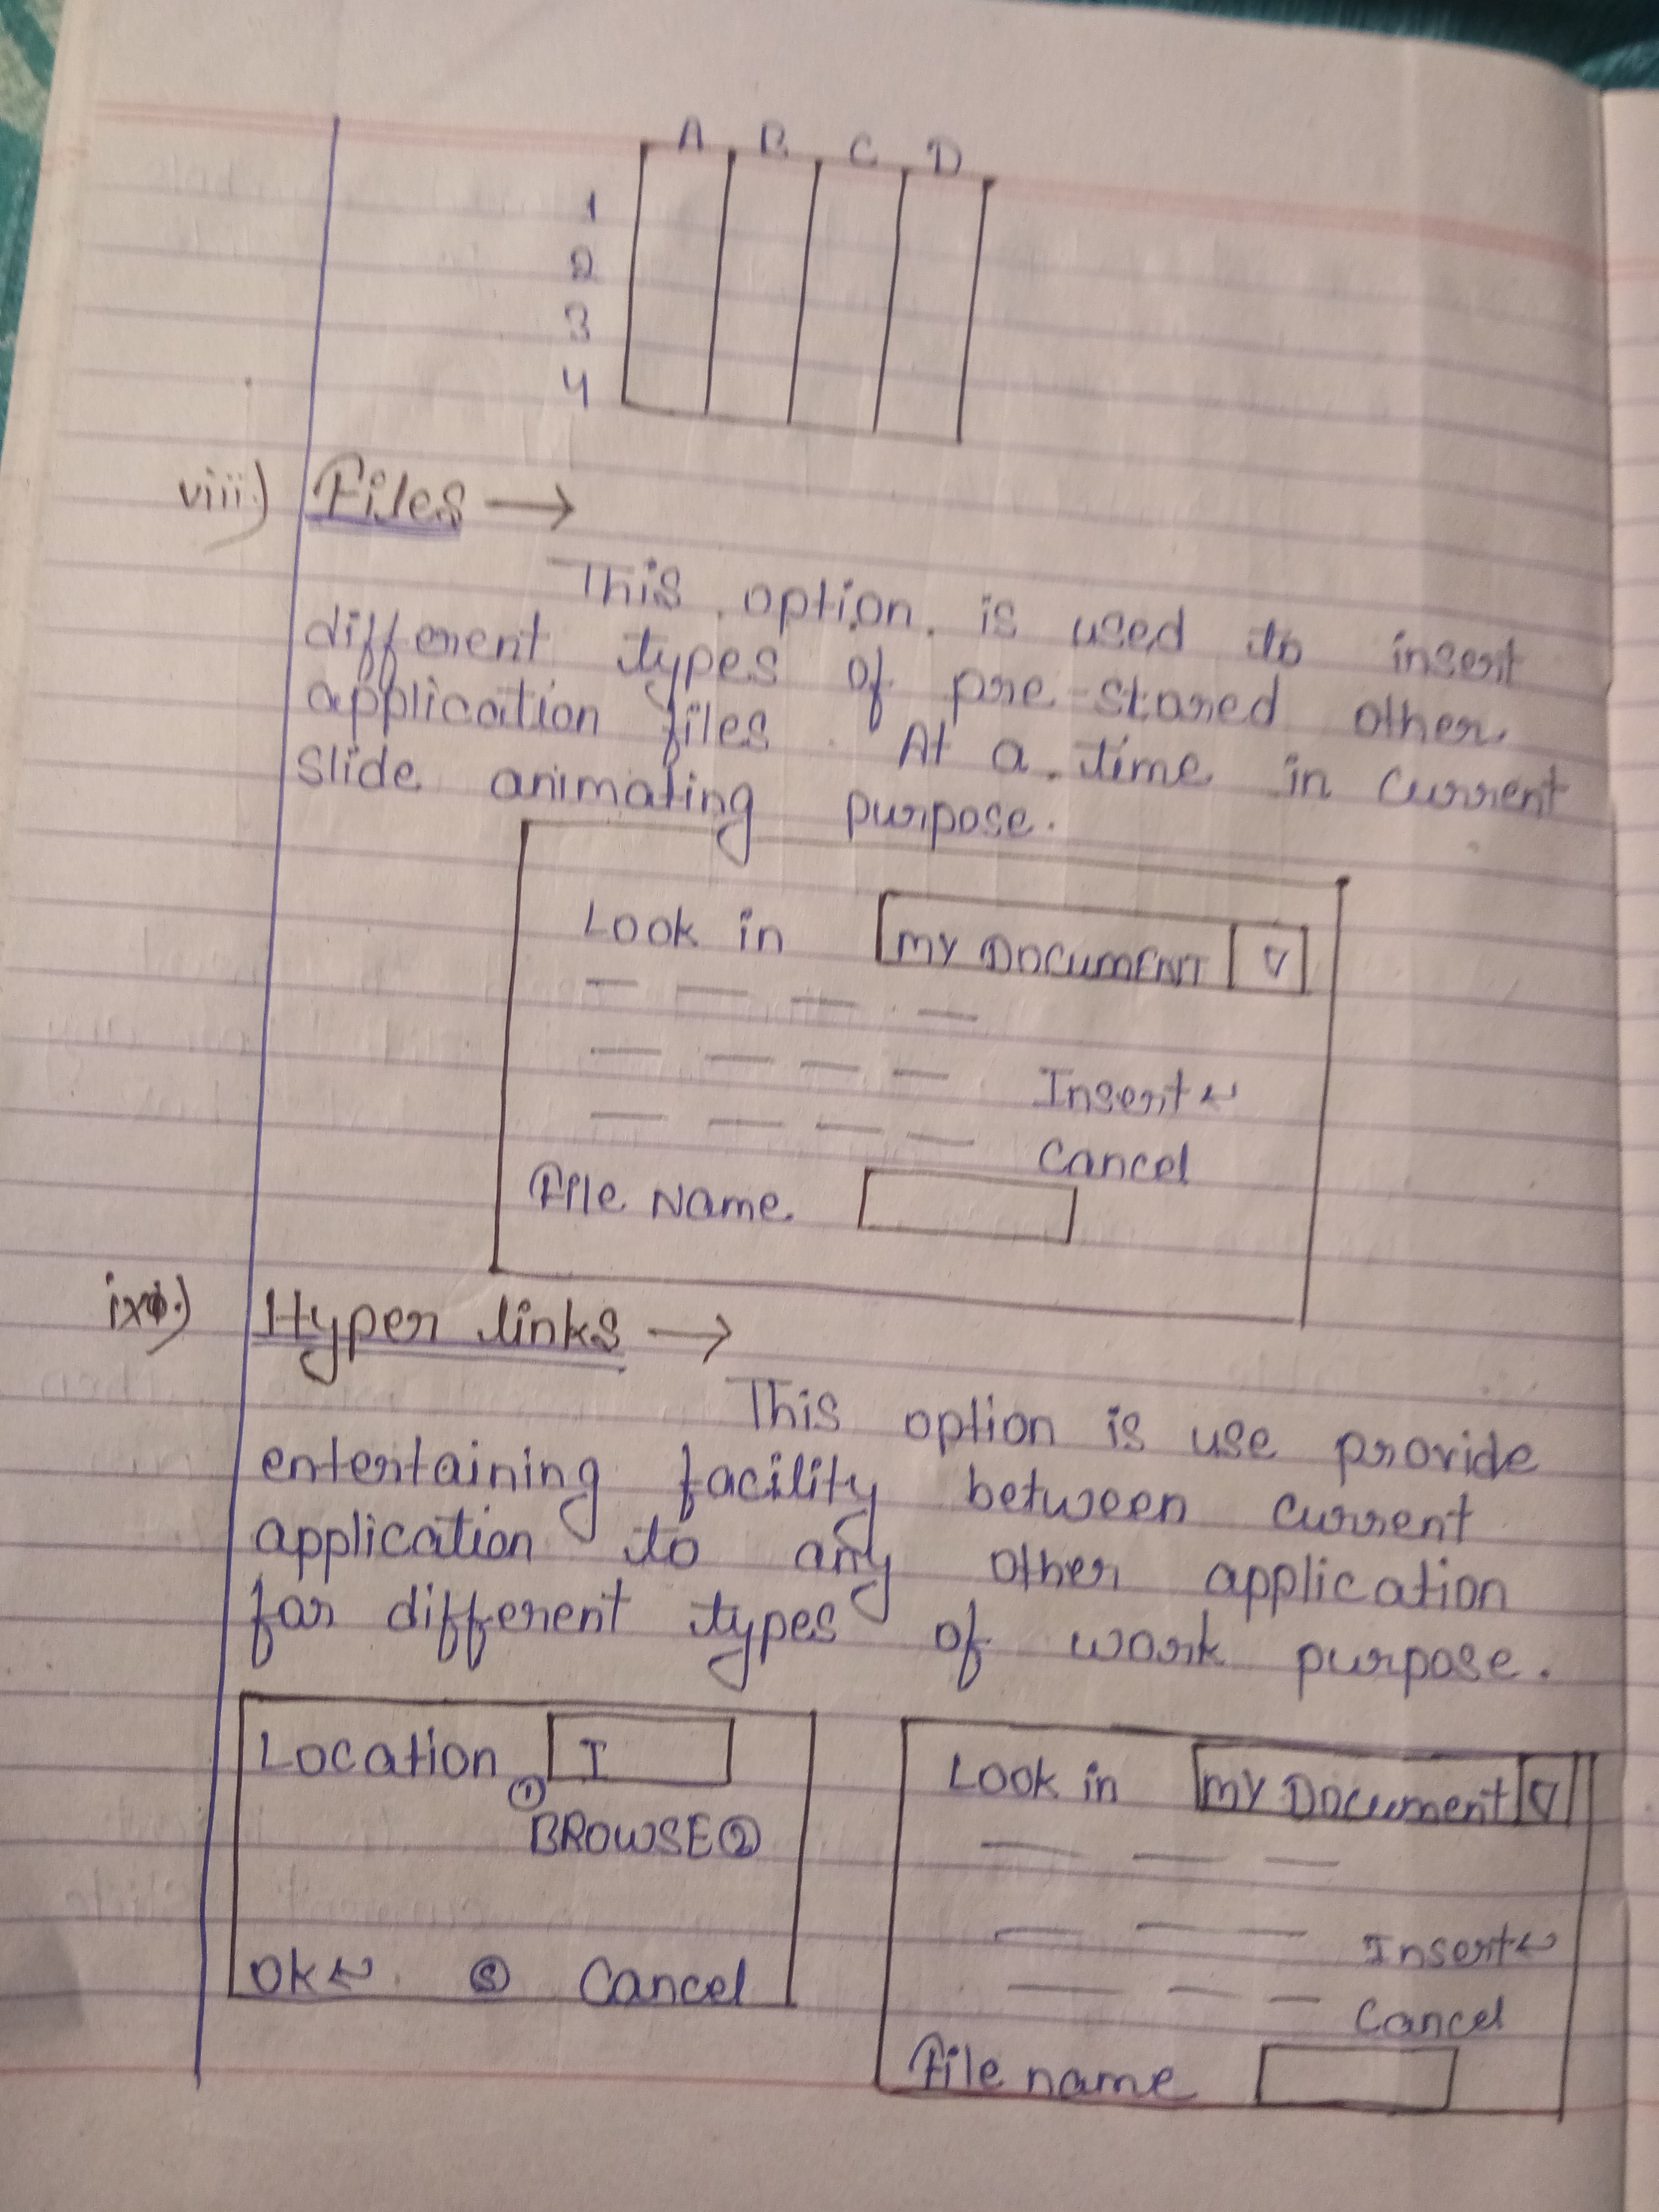 A B C D
1
2
3
4
viii.) Files →
This option is used to insert
different types of pre-stored other
application files. At a time in current
slide animating purpose.
Look in MY DOCUMENT ▽
Insert ↵
Cancel
File Name
ix.) Hyper links →
This option is use provide
entertaining facility between current
application to any other application
for different types of work purpose.
Location I
①
BROWSE ②
OK ↵ ③ Cancel
Look in MY Document ▽
Insert ↵
Cancel
File name